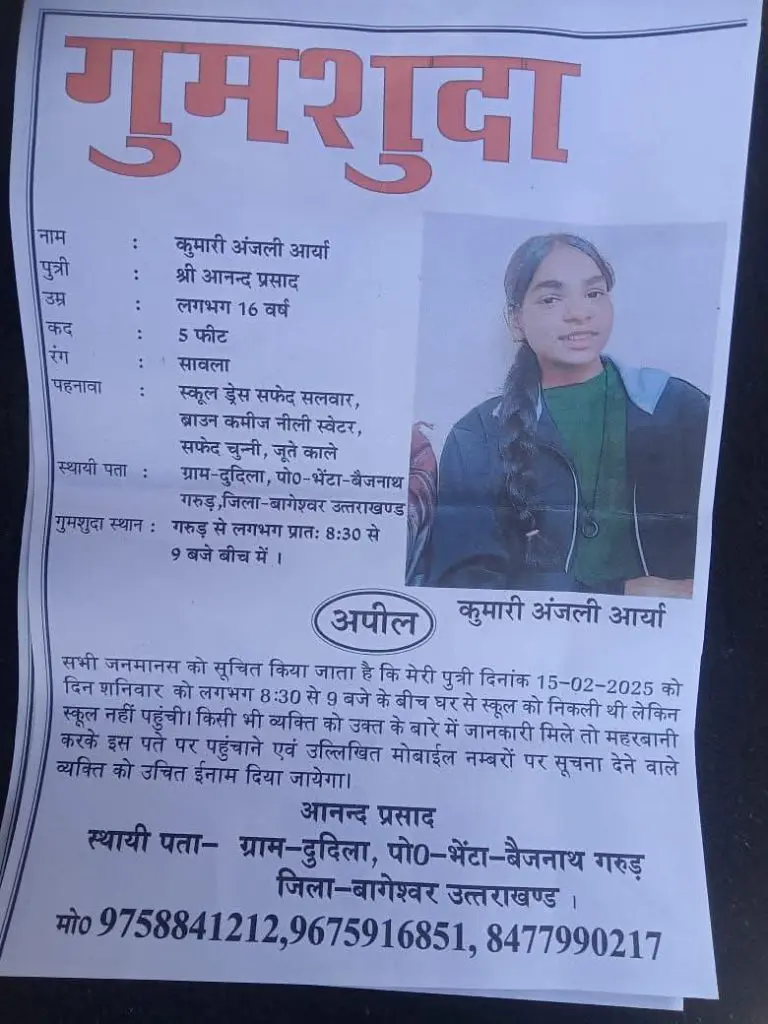 गुमशुदा
नाम : कुमारी अंजली आर्या
पुत्री : श्री आनन्द प्रसाद
उम्र : लगभग 16 वर्ष
कद : 5 फीट
रंग : सावला
पहनावा : स्कूल ड्रेस सफेद सलवार,
ब्राउन कमीज नीली स्वेटर,
सफेद चुन्नी, जूते काले
स्थायी पता : ग्राम-दुदिला, पो0-भेंटा-बैजनाथ
गरुड़,जिला-बागेश्वर उत्तराखण्ड
गुमशुदा स्थान : गरुड़ से लगभग प्रातः 8:30 से
9 बजे बीच में ।
कुमारी अंजली आर्या
अपील
सभी जनमानस को सूचित किया जाता है कि मेरी पुत्री दिनांक 15-02-2025 को
दिन शनिवार को लगभग 8:30 से 9 बजे के बीच घर से स्कूल को निकली थी लेकिन
स्कूल नहीं पहुंची। किसी भी व्यक्ति को उक्त के बारे में जानकारी मिले तो महरबानी
करके इस पते पर पहुंचाने एवं उल्लिखित मोबाईल नम्बरों पर सूचना देने वाले
व्यक्ति को उचित ईनाम दिया जायेगा।
आनन्द प्रसाद
स्थायी पता– ग्राम–दुदिला, पो0–भेंटा–बैजनाथ गरुड़
जिला–बागेश्वर उत्तराखण्ड ।
मो0 9758841212,9675916851, 8477990217